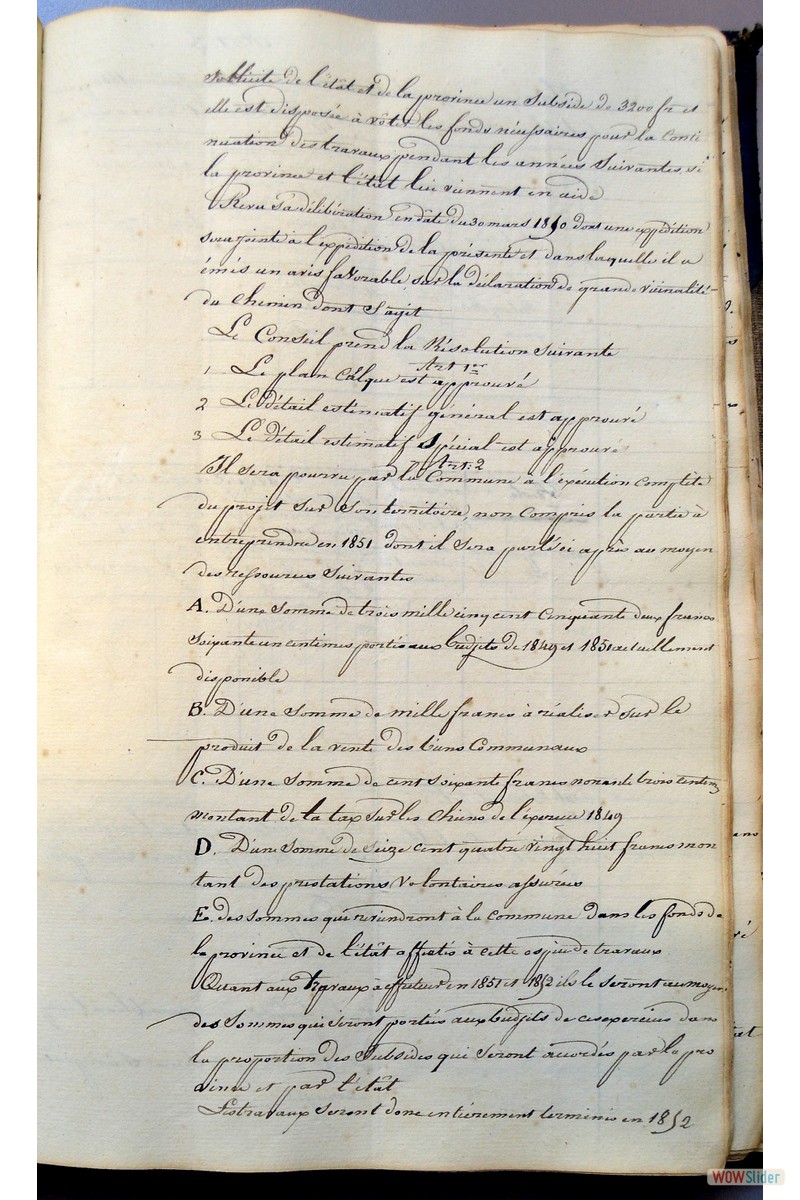 sollicite de l'état et de la province un Subside de 3200 fr et
elle est disposée à vôter les fonds nécessaires pour la Conti
nuation des travaux pendant les années Suivantes, si
la province et l'état lui viennent en aide
Revu sa délibération en date du 30 mars 1850 dont une expédition
sera jointe à l'expédition de la présente et dans laquelle il a
émis un avis favorable sur la déclaration de grande vicinalité
du Chemin dont S'agit
Le Conseil prend la Résolution Suivante
Art 1er
1 Le plan Calque est approuvé
2 Le Détail estimatif général est approuvé
3 Le Détail estimatif spécial est approuvé
Art: 2
Il sera pourvu par la Commune a l'exécution complète
du projet sur son territoire, non Compris la partie à
entreprendre en 1851 dont il sera parlé ci après au moyen
des ressources Suivantes
A. D'une Somme de trois mille cinq cent Cinquante deux francs
Soixante un centimes portés aux budjets de 1849 et 1850 actuellement
disponible
B. D'une Somme de mille francs à réaliser sur le
produit de la vente des biens Communaux
C. D'une Somme de cent soixante francs nonante trois centim
montant de la tax sur les chiens de l'éxercice 1849
D. D'une Somme de Seize cent quatre vingt huit francs mon
tant des prestations Volontaires assurées
E. des sommes qui reviendront à la commune dans les fonds de
la province et de l'état affectés à cette espèce de travaux
Quant aux travaux à effectuer en 1851 et 1852 ils le seront au moyen
des Sommes qui Seront portées aux budjets de ces exercices dans
la proportion des Subsides qui seront accordés par la pro
vince et par l'état
Les travaux seront donc entièrement terminés en 1852
WOWSlider